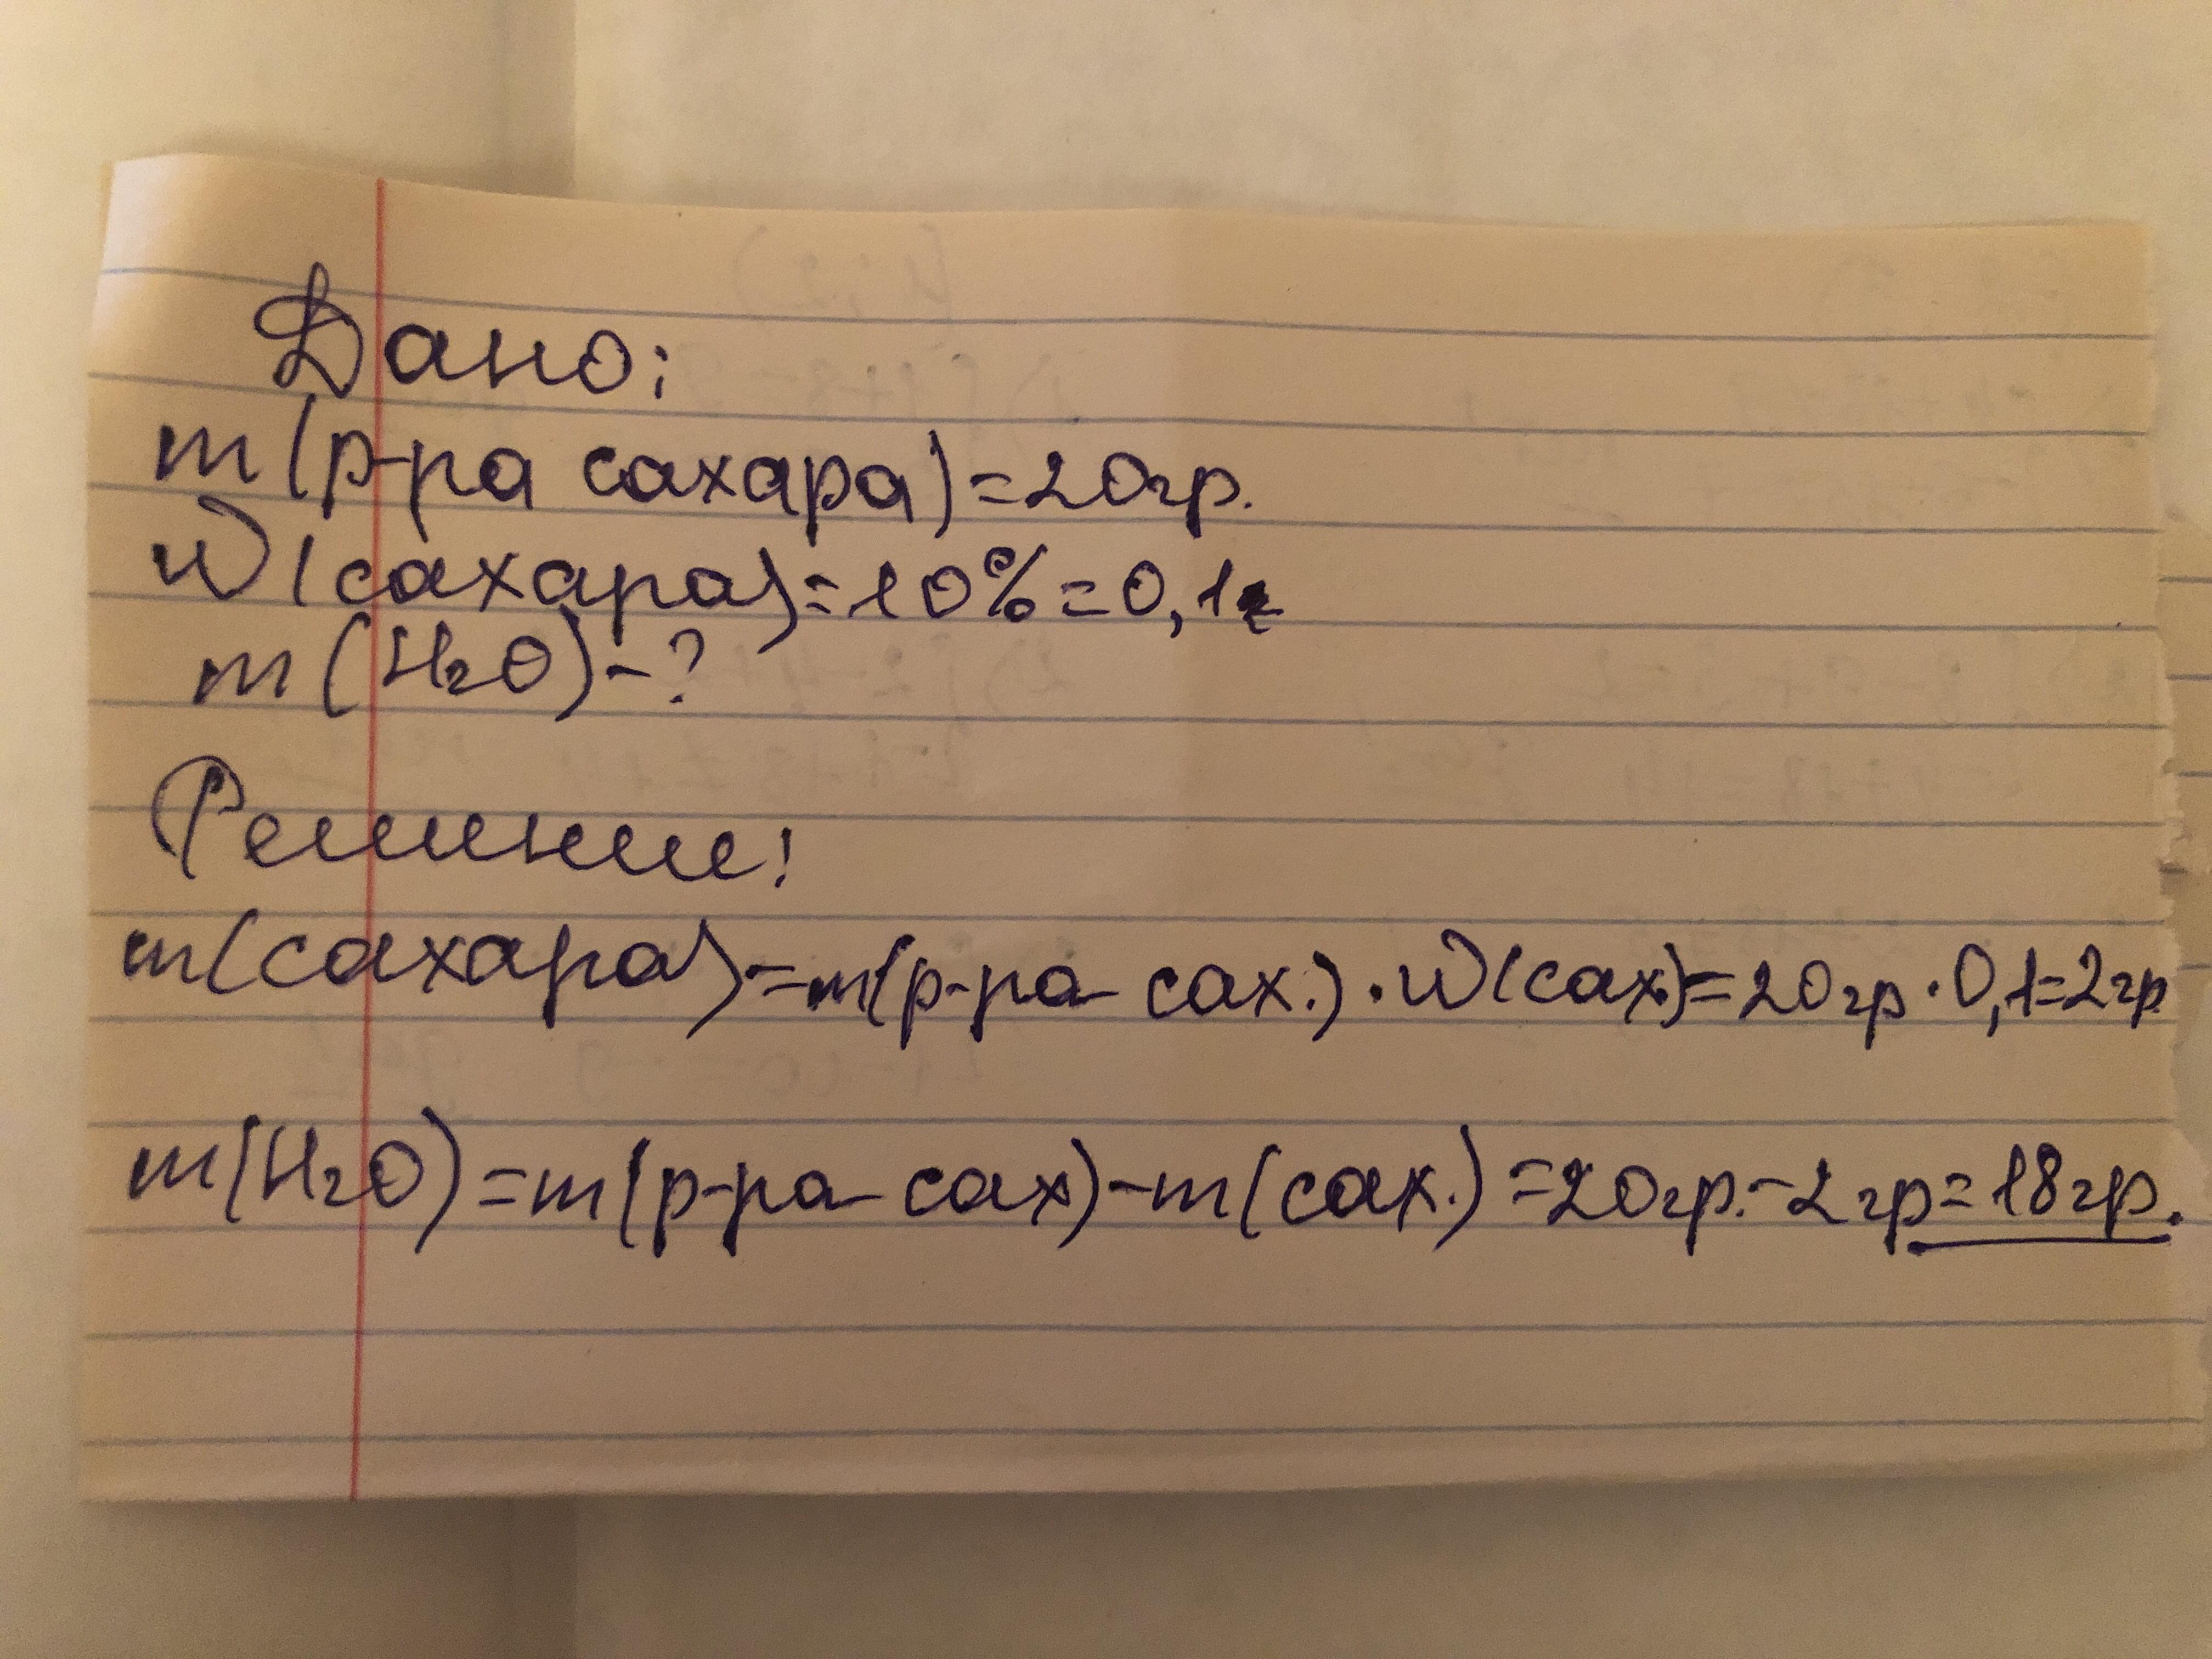 Дано:
m(р-ра сахара)=20гр.
W(сахара)=10%=0,1
m(H₂O)-?
Решение:
m(сахара)=m(р-ра сах.)·W(сах.)=20гр·0,1=2гр
m(H₂O)=m(р-ра сах)-m(сах.)=20гр.-2гр=18гр.